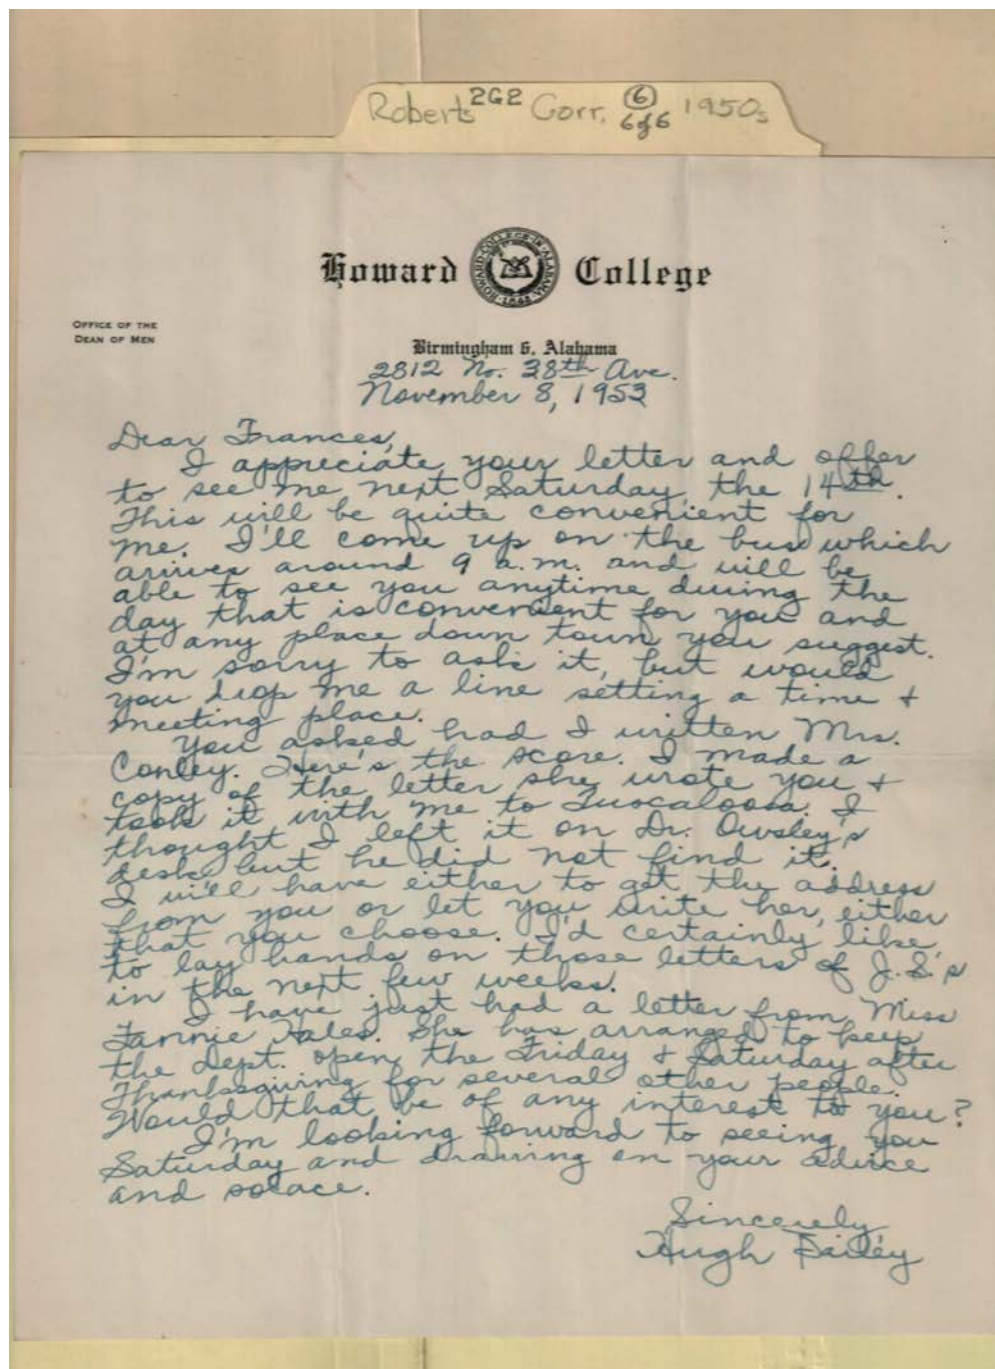 Roberts 2G2 Corr. 6 1950s
6 of 6
Howard College
HOWARD COLLEGE IN ALABAMA
OFFICE OF THE
DEAN OF MEN
Birmingham 6, Alabama
2812 No. 38th Ave.
November 8, 1953
Dear Frances,
I appreciate your letter and offer
to see me next Saturday, the 14th.
This will be quite convenient for
me. I'll come up on the bus which
arives around 9 a.m. and will be
able to see you anytime during the
day that is convenient for you and
at any place down town you suggest.
I'm sorry to ask it, but would
you drop me a line setting a time +
meeting place.
You asked had I written Mrs.
Conley. Here's the score. I made a
copy of the letter she wrote you +
took it with me to Tuscaloosa. I
thought I left it on Dr. Owsley's
desk but he did not find it.
I will have either to get the address
from you or let you write her, either
that you choose. I'd certainly like
to lay hands on those letters of J.S.'s
in the next few weeks.
I have just had a letter from Miss
Fannie Hales. She has arranged to keep
the dept. open the Friday + Saturday after
Thanksgiving for several other people.
Would that be of any interest to you?
I'm looking forward to seeing you
Saturday and drawing on your advice
and solace.
Sincerely
Hugh Bailey